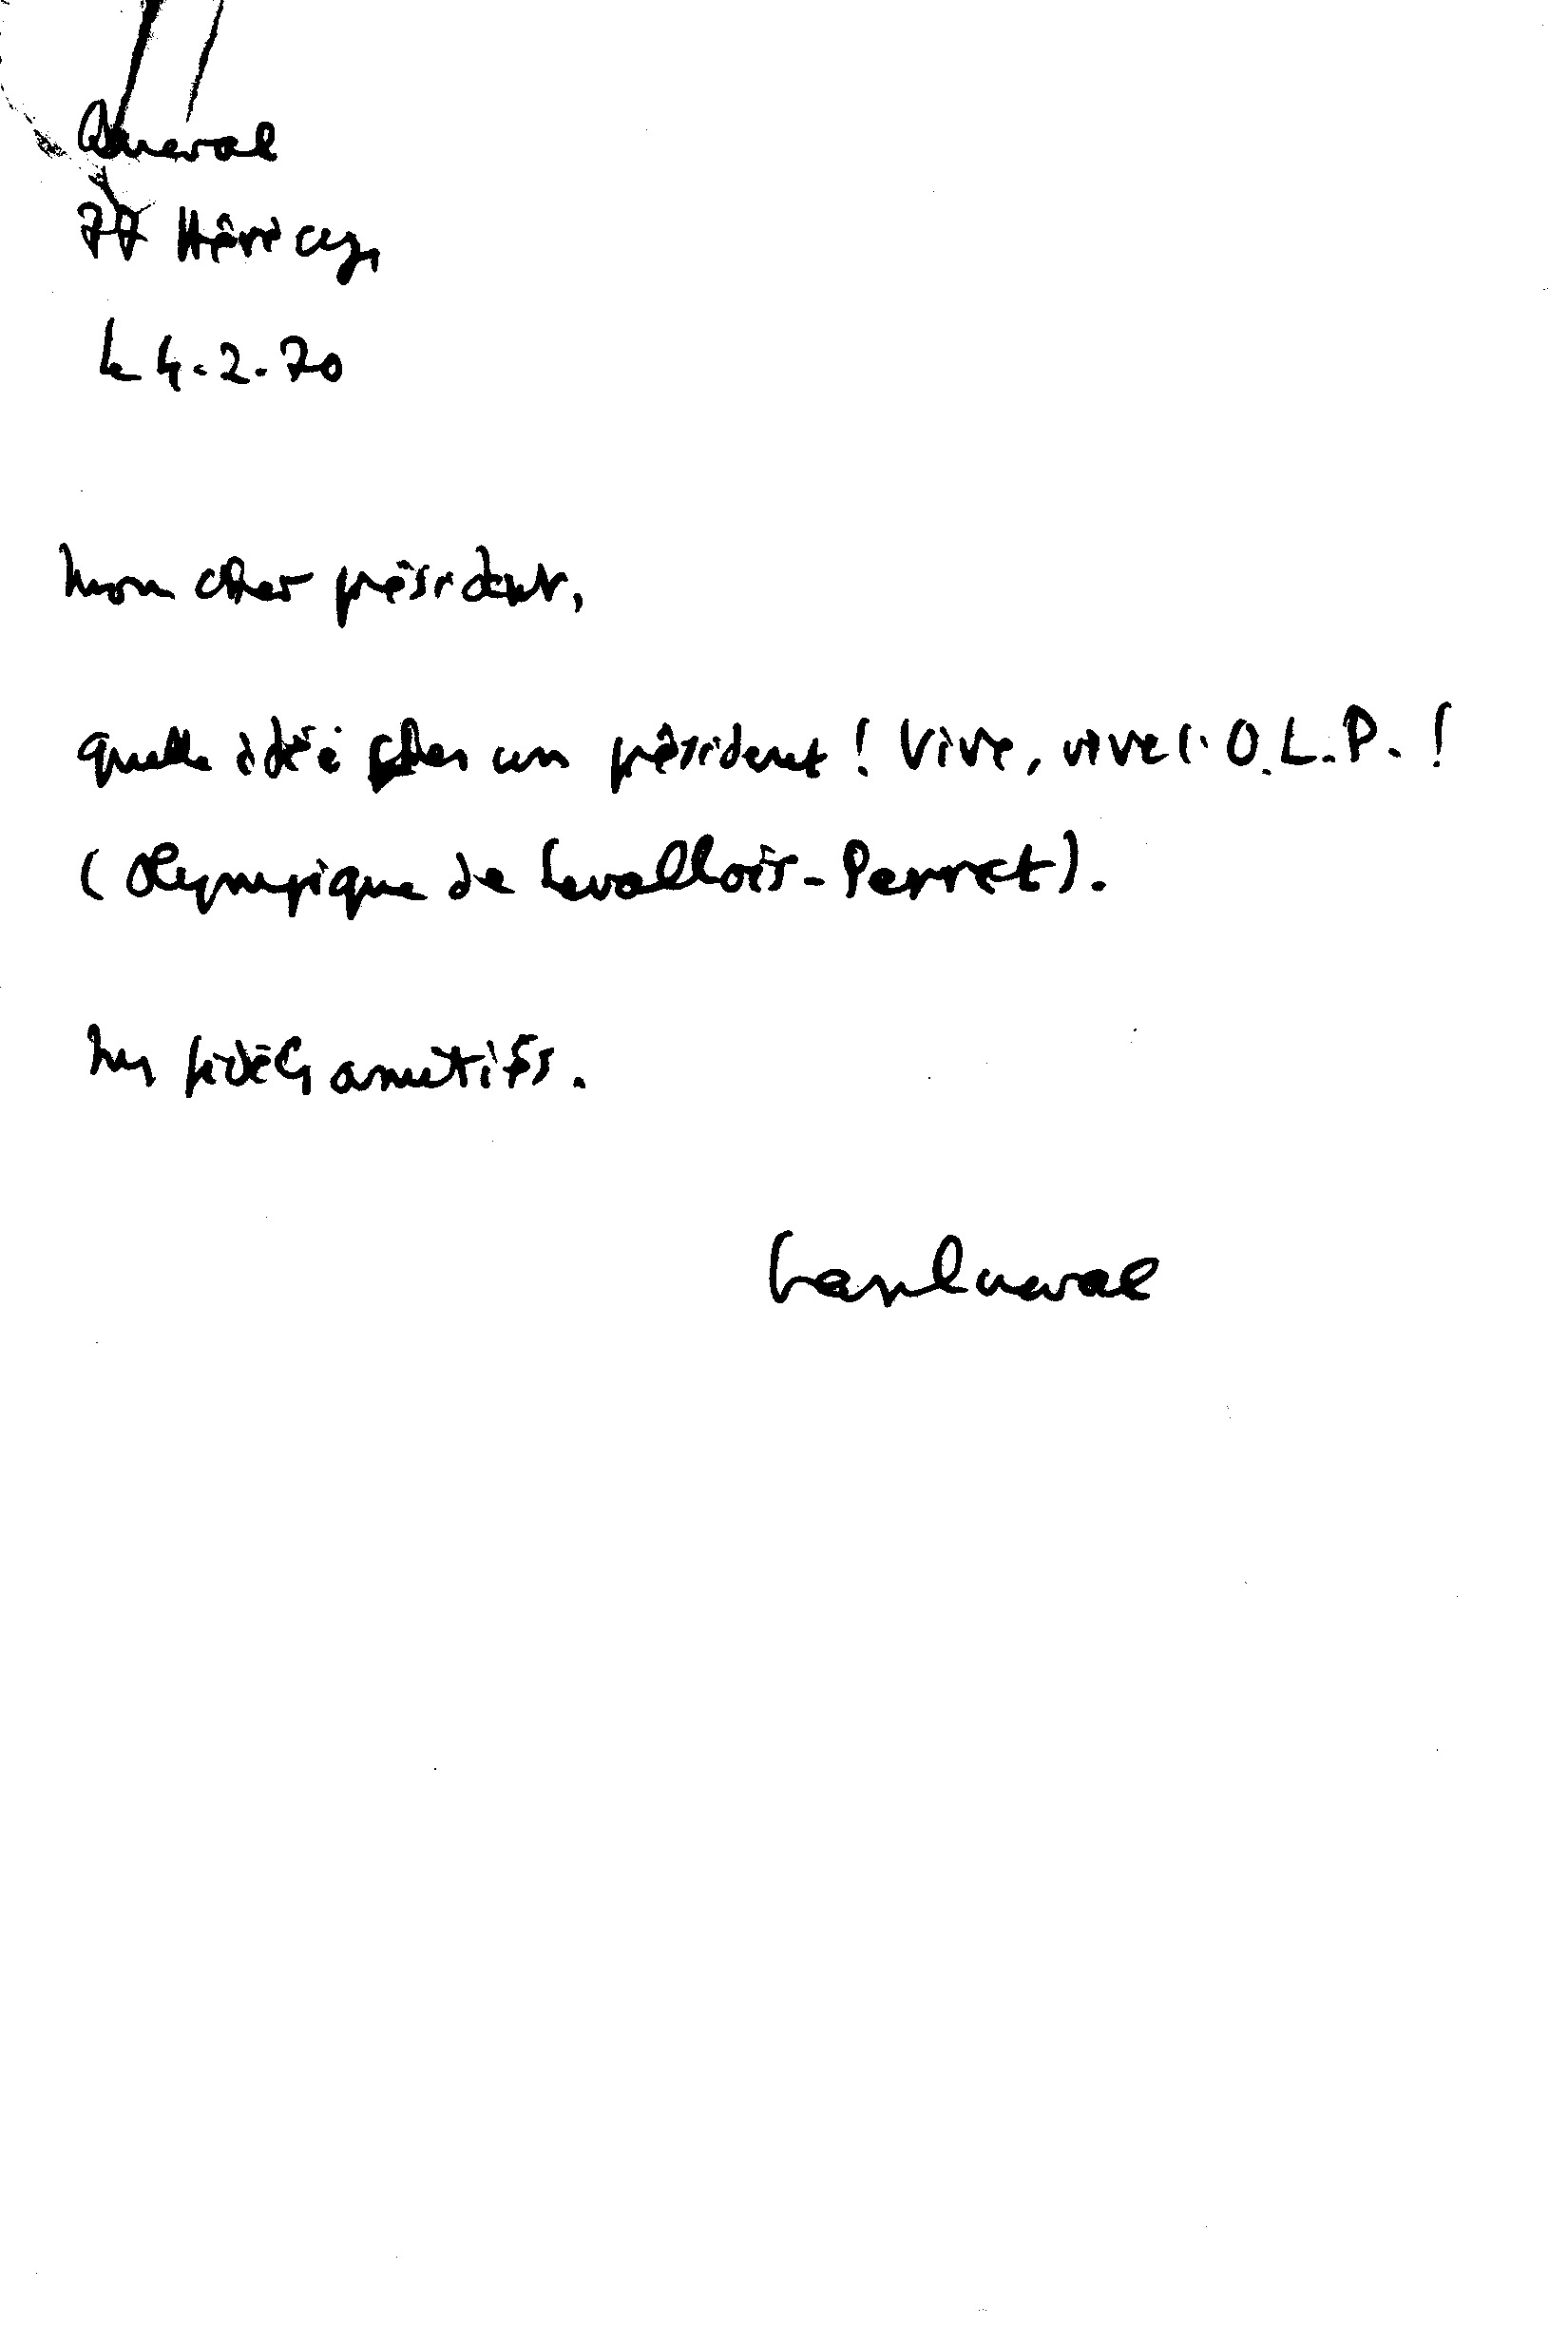 Queval
77 Héricy,
le 4.2.70
Mon cher président,
quelle idée cher un président ! Vive, vive l'O.L.P. !
(Olympique de Levallois-Perret).
Mes fidèles amitiés.
Jean Queval